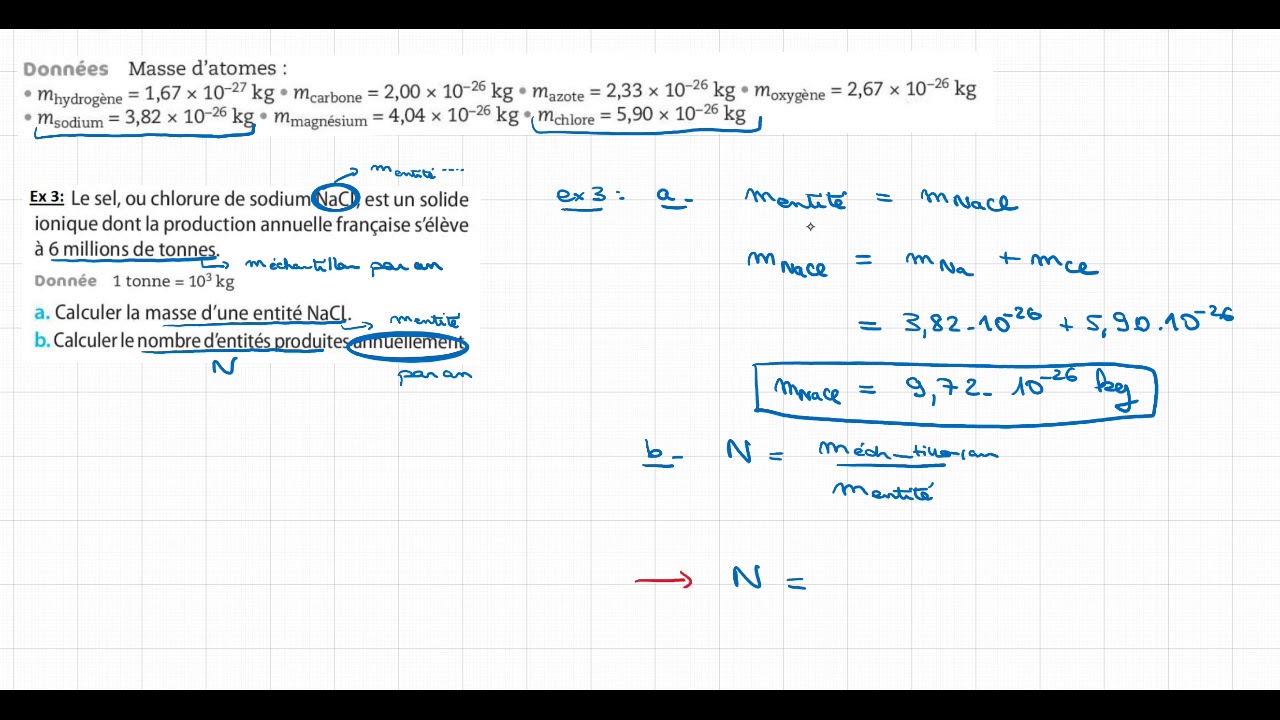 Données Masse d'atomes :
• m_hydrogène = 1,67 × 10⁻²⁷ kg • m_carbone = 2,00 × 10⁻²⁶ kg • m_azote = 2,33 × 10⁻²⁶ kg • m_oxygène = 2,67 × 10⁻²⁶ kg
• m_sodium = 3,82 × 10⁻²⁶ kg • m_magnésium = 4,04 × 10⁻²⁶ kg • m_chlore = 5,90 × 10⁻²⁶ kg
m entité ....
Ex 3: Le sel, ou chlorure de sodium NaCl, est un solide
ionique dont la production annuelle française s'élève
à 6 millions de tonnes.
méchantillon par an
Donnée 1 tonne = 10³ kg
a. Calculer la masse d'une entité NaCl.
mentité
b. Calculer le nombre d'entités produites annuellement
N
par an
ex 3 : a - m entité = m NaCl
m NaCl = m Na + m Cl
= 3,82 . 10⁻²⁶ + 5,90 . 10⁻²⁶
m NaCl = 9,72 . 10⁻²⁶ kg
b - N =
m entité
→ N =